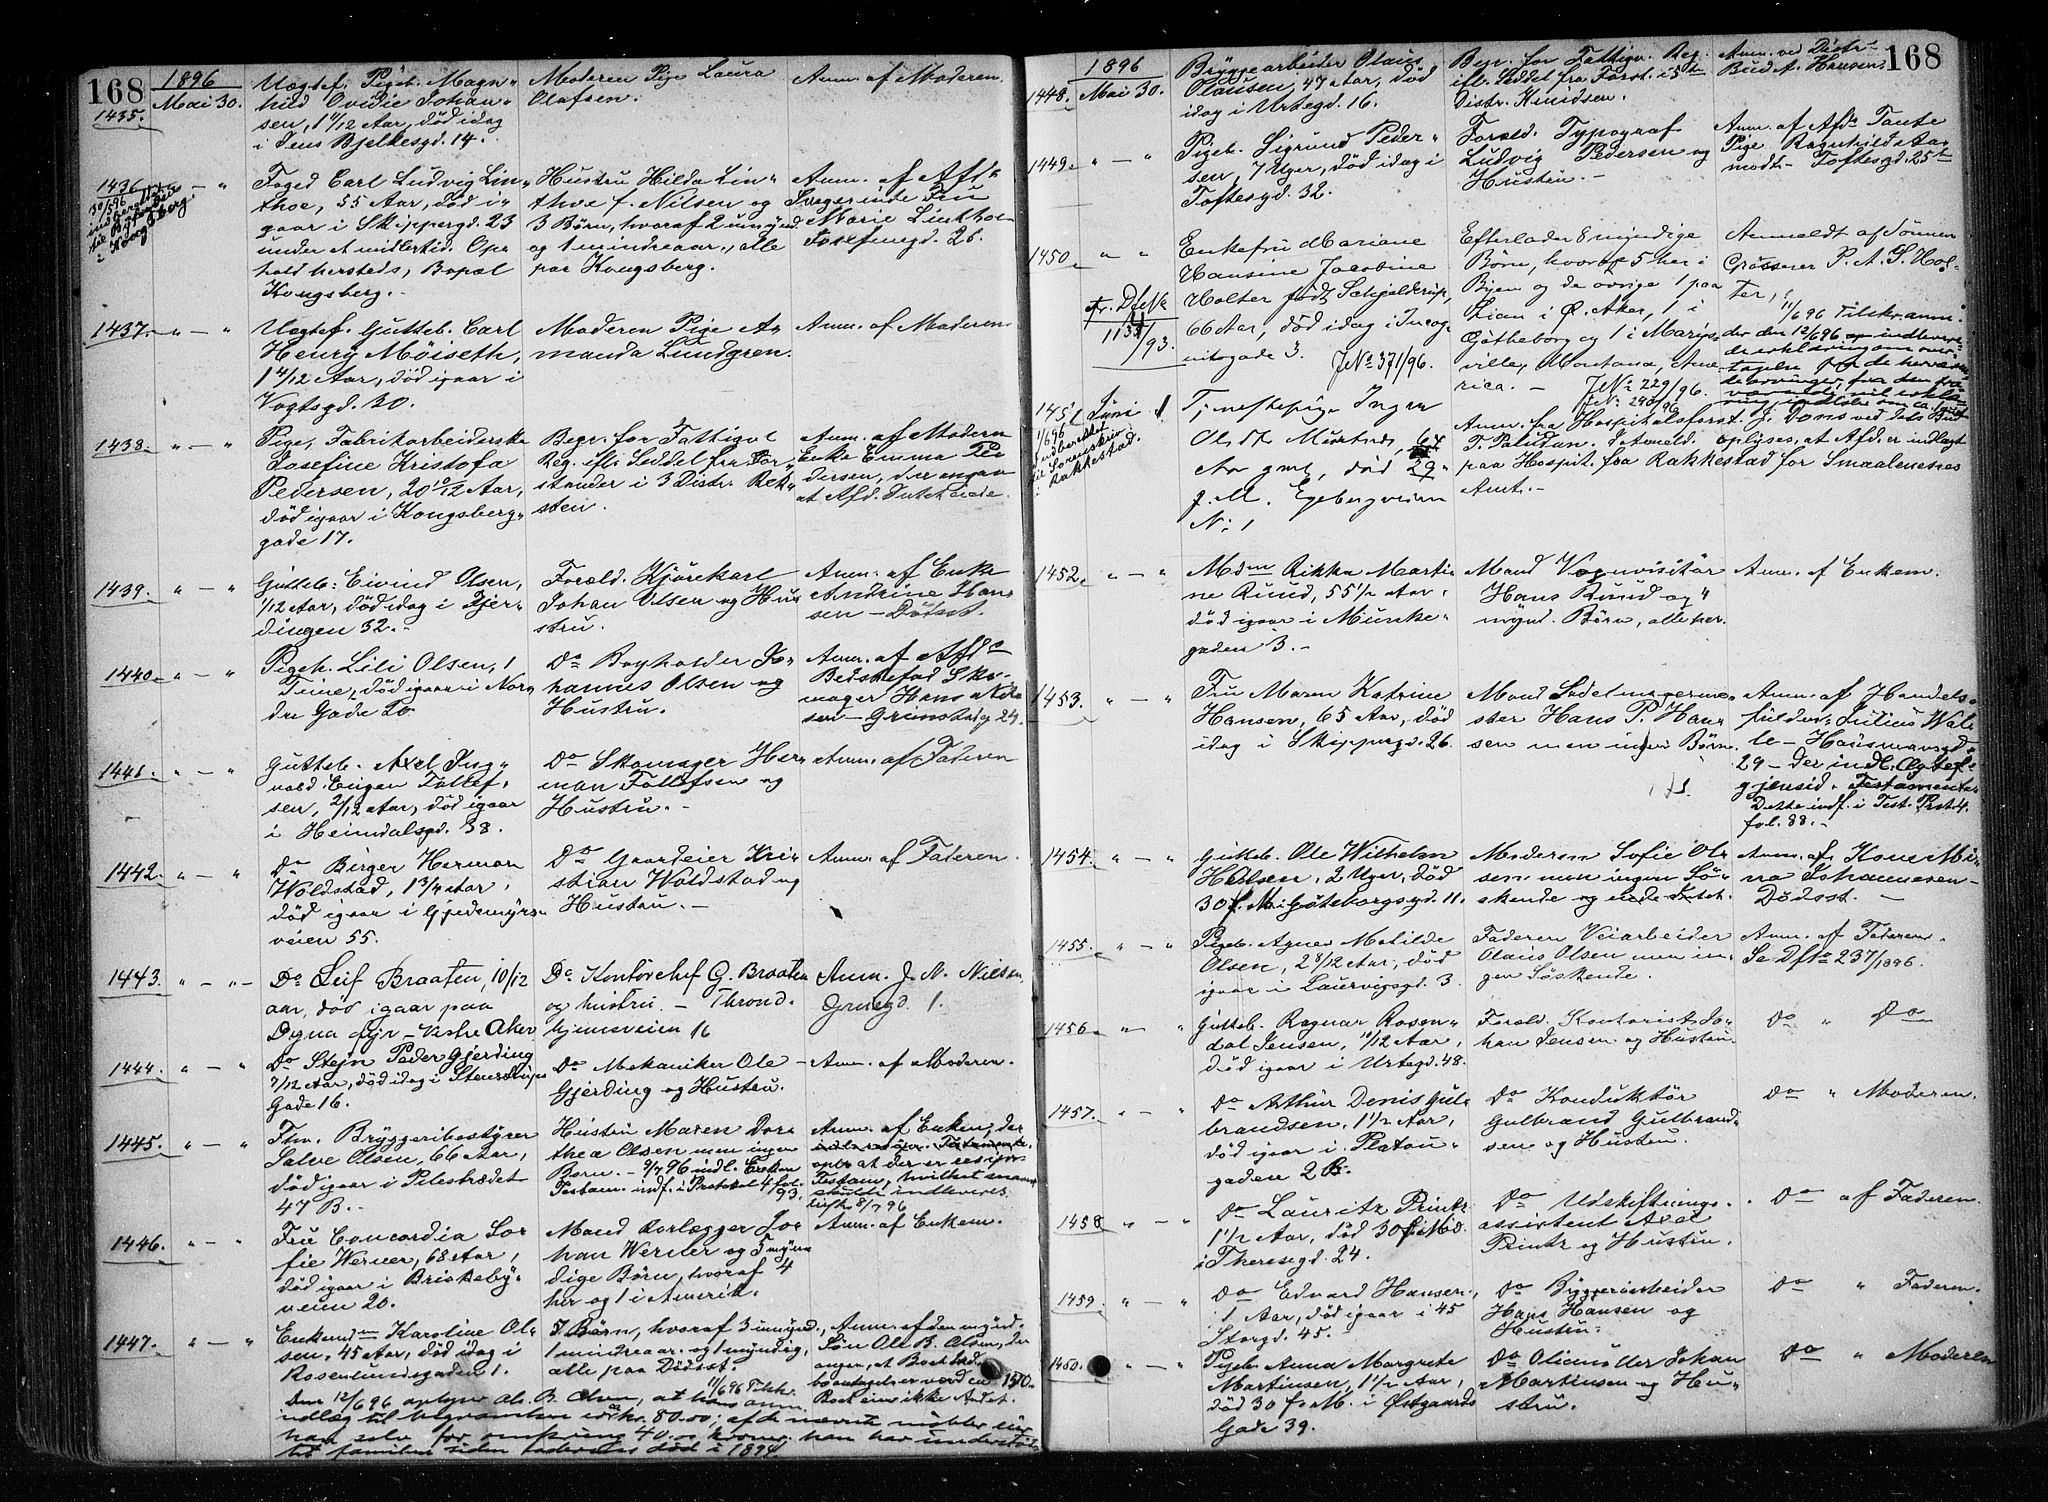 168
1896
Mai 30.
1435.
Uægtef. Pigeb. Magn-
hild Ovidie Johan-
sen, 1 11/12 Aar, död idag
i Jens Bjelkesgd. 14.
Moderen Pige Laura
Olafsen.
Anm. af Moderen.
1436
30/5 96
indberettet
til Byfogden
i Kongsberg.
Foged Carl Ludvig Lin-
thoe, 55 Aar, död i-
gaar i Skippergd. 23
under et midlertid. Op-
hold hersteds, Bopæl
Kongsberg.
Hustru Hilda Lin-
thoe f. Nilsen og
3 Börn, hvoraf 2 umynd.
og 1 mindreaar., alle
paa Kongsberg.
Anm. af Afd.
Svogerinde Fru
Marie Linthoe
Josefinegd. 26.
1437.
Uægtef. Gutteb. Carl
Henry Möiseth,
1 4/12 Aar, död igaar i
Vogtsgd. 30.
Moderen Pige A-
manda Lundgren.
Anm. af Moderen
1438.
Pige, Fabrikarbeiderske
Josefine Kristofa
Pedersen, 20 9/12 Aar,
död igaar i Kongsberg-
gade 17.
Begr. for Fattigv.
Reg. ifl. Seddel fra For-
stander i 3 Distr. Rek-
sten.
Anm. af Moderen
Enke Emma Pe-
dersen, der angav
at Afd. Intet eiede.
1439.
Gutteb. Eivind Olsen,
1/12 Aar, död idag i Fjer-
dingen 32.
Foræld. Kjörekarl
Johan Olsen og Hu-
stru.
Anm. af Enke
Andrine Han-
sen - Dödsst.
1440.
Pigeb. Lili Olsen, 1
Time, död igaar i Nor-
dre Gade 20.
Do Bogholder Jo-
hannes Olsen og
Hustru.
Anm. af Afd.
Bedstefad. Sko-
mager Hans
sen - Grimstadg 24.
1441.
Gutteb. Axel Ing-
vald Eugen Tollef-
sen, 2/12 Aar, död igaar
i Heimdalsgd. 38.
Do Skomager Her-
man Tollefsen og
Hustru.
Anm. af Faderen
1442.
Do Birger Herman
Woldstad, 1 3/4 Aar,
död igaar i Gjedemyrs-
veien 55.
Do Gaardeier Kri-
stian Woldstad og
Hustru.
Anm. af Faderen.
1443.
Do Leif Braaten, 10/12
aar, död igaar paa
Dyna fyr - Vestre Aker
Do Kontorchef G. Braaten
og hustru. - Thrond-
hjemsveien 16
Anm. J. N. Nielsen,
Grnegd. 1.
1444.
Do Stejn Peder Gjerding
7/12 Aar, död idag i Stenstrups
Gade 16.
Do Mekaniker Ole
Gjerding og Hustru.
Anm. af Moderen.
1445.
Fhv. Bryggeribestyrer
Salve Olsen, 66 Aar,
död igaar i Pilestrædet
47 B.
Hustru Maren Doro-
thea Olsen men ingen
Börn. - 9/7 96 indl. Enken
Testam. indf. i Protokol 4 fol.
93.
Anm. af Enken, der
opl. at der er
Testam., hvilket
skulde indleveres.
1446.
Fru Concordia So-
fie Werner, 68 Aar,
död igaar i Briskeby-
veien 20.
Mand Forlægger Jo-
han Werner og 5 myn-
dige Börn, hvoraf 4
her og 1 i Amerik.
Anm. af Enkem.
1447.
Enkemdm Karoline Ol-
sen, 45 Aar, död idag i
Rosenlundsgaden 1.
5 Börn, hvoraf 3 umynd.,
1 mindreaar. og 1 myndig,
alle paa Dödsst.
Anm. af den mynd.
Sön Ole B. Olsen, der
angav, at Boet
antagelser værd ca 150.
Boet eier ikke Andet.
11/6 96 Tilskr.
Den 12/6 96 oplyser Ole B. Olsen, at hans anm.
udlæg til begravelsen er kr. 80.00; af de nævnte möbler eier
han selv for omkring 40.00 kroner. han har understöt-
tet familien siden faderens död i 1894.
168
1896
1448.
Mai 30.
Bryggearbeider Olaus
Olausen, 47 Aar, död
idag i Urtegd. 16.
Begr. for Fattigv. Reg.
ifl. Seddel fra Forst. i 5te
Distr. Knudsen.
Anm. ved Distr.
Bud A. Hansen.
1449.
Pigeb. Sigrund Peder-
sen, 7 Uger, död idag i
Toftesgd. 32.
Foræld. Typograf
Ludvig Pedersen og
Hustru.
Anm. af Afds Tante
Pige Ragnhild Aa-
modt - Toftesgd. 25
1450.
fr. Dfsk
1133/93.
Enkefru Mariane
Hansine Jacobine
Holter födt Schjelderup,
66 Aar, död idag i Incog-
nitogade 3.
J No 371/96.
Efterlader 8 myndige
Börn, hvoraf 5 her i
Byen og de övrige 1 paa
Lian i Ö. Aker, 1 i
Götheborg og 1 i Marys-
ville, Montana, Ame-
rica.
J No 229/96.
J No 290/96
Anmeldt af Sönnen
Grosserer P. A. S. Hol-
ter,
11/6 96 Tilskr. anm.
der den 12/6 96
1451
Juni 1
1/6 96
indberettet
til Sorenskriv.
i Rakkestad.
Tjenestepige Inger
Olsdt. 64
Aar gml, död 29-
f. M. Egebergveien
No 1
Anm. fra Hospitalsforst. J. Dons ved dets Bud
T. Paludan. I Anmeld. oplyses, at Afd. er indlagt
paa Hospit. fra Rakkestad for Smaalenenes
Amt.
1452.
Mdm Rikka Marti-
ne Ruud, 55 1/2 Aar,
död igaar i Munke-
gaden 3.
Mand Vognvisitör
Hans Ruud og 4
mynd. Börn, alle her.
Anm. af Enkem.
1453.
Fru Maren Katrine
Hansen, 65 Aar, död
idag i Skippergd. 26.
Mand Sadelmagerme-
ster Hans P. Han-
sen men ingen Börn.
Anm. af Handels-
fuldm. Julius Wale-
le - Hausmannsgd
29 - der indl. Ægtef.
gjensid. Testamente
Dette indf. i Test. Prot. 4.
fol. 88.
1454.
Gutteb. Ole Wilhelm
Olsen, 2 Uger, död
30 f. M. i Göteborgsgd. 11.
Moderen Sofie Ol-
sen men ingen Sö-
skende og eiede Intet.
Anm. af Kone Mi-
na Johannesen -
Dödsst.
1455.
Pigeb. Agnes Matilde
Olsen, 2 8/12 Aar, död
igaar i Laurvigsgd. 3.
Faderen Veiarbeider
Olaus Olsen men in-
gen Söskende.
Anm. af Faderen.
Se Dfto 237/1896.
1456.
Gutteb. Ragnar Rosen-
dal Jensen, 10/12 Aar,
död igaar i Urtegd. 48.
Foræld. Kontorist Jo-
han Jensen og Hustru.
Do " Do
1457.
Do Arthur Denis Gul-
brandsen, 1 1/2 Aar,
död igaar i Platou-
gaden 2 B.
Do Konduktör
Gulbrand Gulbrand-
sen og Hustru.
Do " Moderen.
1458
Do Lauritz Printz
1 1/2 Aar, död 30 f. Md.
i Theresegd. 24.
Do Udskiftnings-
assistent Axel
Printz og Hustru.
Do af Faderen.
1459.
Do Edvard Hansen,
1 Aar, död igaar i 45
Storgd. 45.
Do Bryggeriarbeider
Hans Hansen og
Hustru.
Do " Faderen.
1460.
Pigeb. Anna Margrete
Martinsen, 1 1/2 Aar,
död 30 f. M. i Östgaards
Gade 39.
Do Oliemöller Johan
Martinsen og Hu-
stru.
Do " Moderen